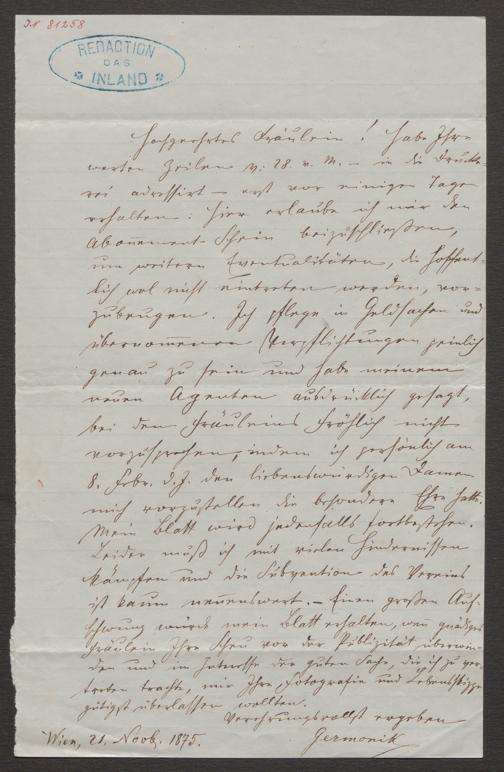 J.N 81258
REDACTION
DAS
INLAND
Hochgeehrtes Fräulein! Habe Ihre
werten Zeilen v. 28. v. M. – in die Drucke-
rei adressirt – erst vor einigen Tagen
erhalten. Hier erlaube ich mir den
Abonnement-Schein beizuschließen,
um weitern Eventualitäten, die hoffent-
lich wol nicht eintreten werden, vor-
zubeugen. Ich pflege in Geldsachen und
übernommenen Verpflichtungen peinlich
genau zu sein und habe meinem
neuen Agenten ausdrücklich gesagt,
bei den Fräuleins Fröhlich nicht
vorzusprechen, indem ich persönlich am
8. Febr. d. J. den liebenswürdigen Damen
mich vorzustellen die besondere Ehre hatte.
Mein Blatt wird jedenfalls fortbestehen.
Leider muß ich mit vielen Hindernissen
kämpfen und die Subvention des Vereins
ist kaum nennenswert. – Einen großen Auf-
schwung würde mein Blatt erhalten, wenn gnädiges
Fräulein Ihre Scheu vor der Publizität überwin-
den und im Interesse der guten Sache, die ich zu ver-
treten trachte, mir Ihre Fotografie und Lebensskizze
gütigst überlassen wollten.
Verehrungsvollst ergeben
Wien, 21. Novb. 1875. Germonik